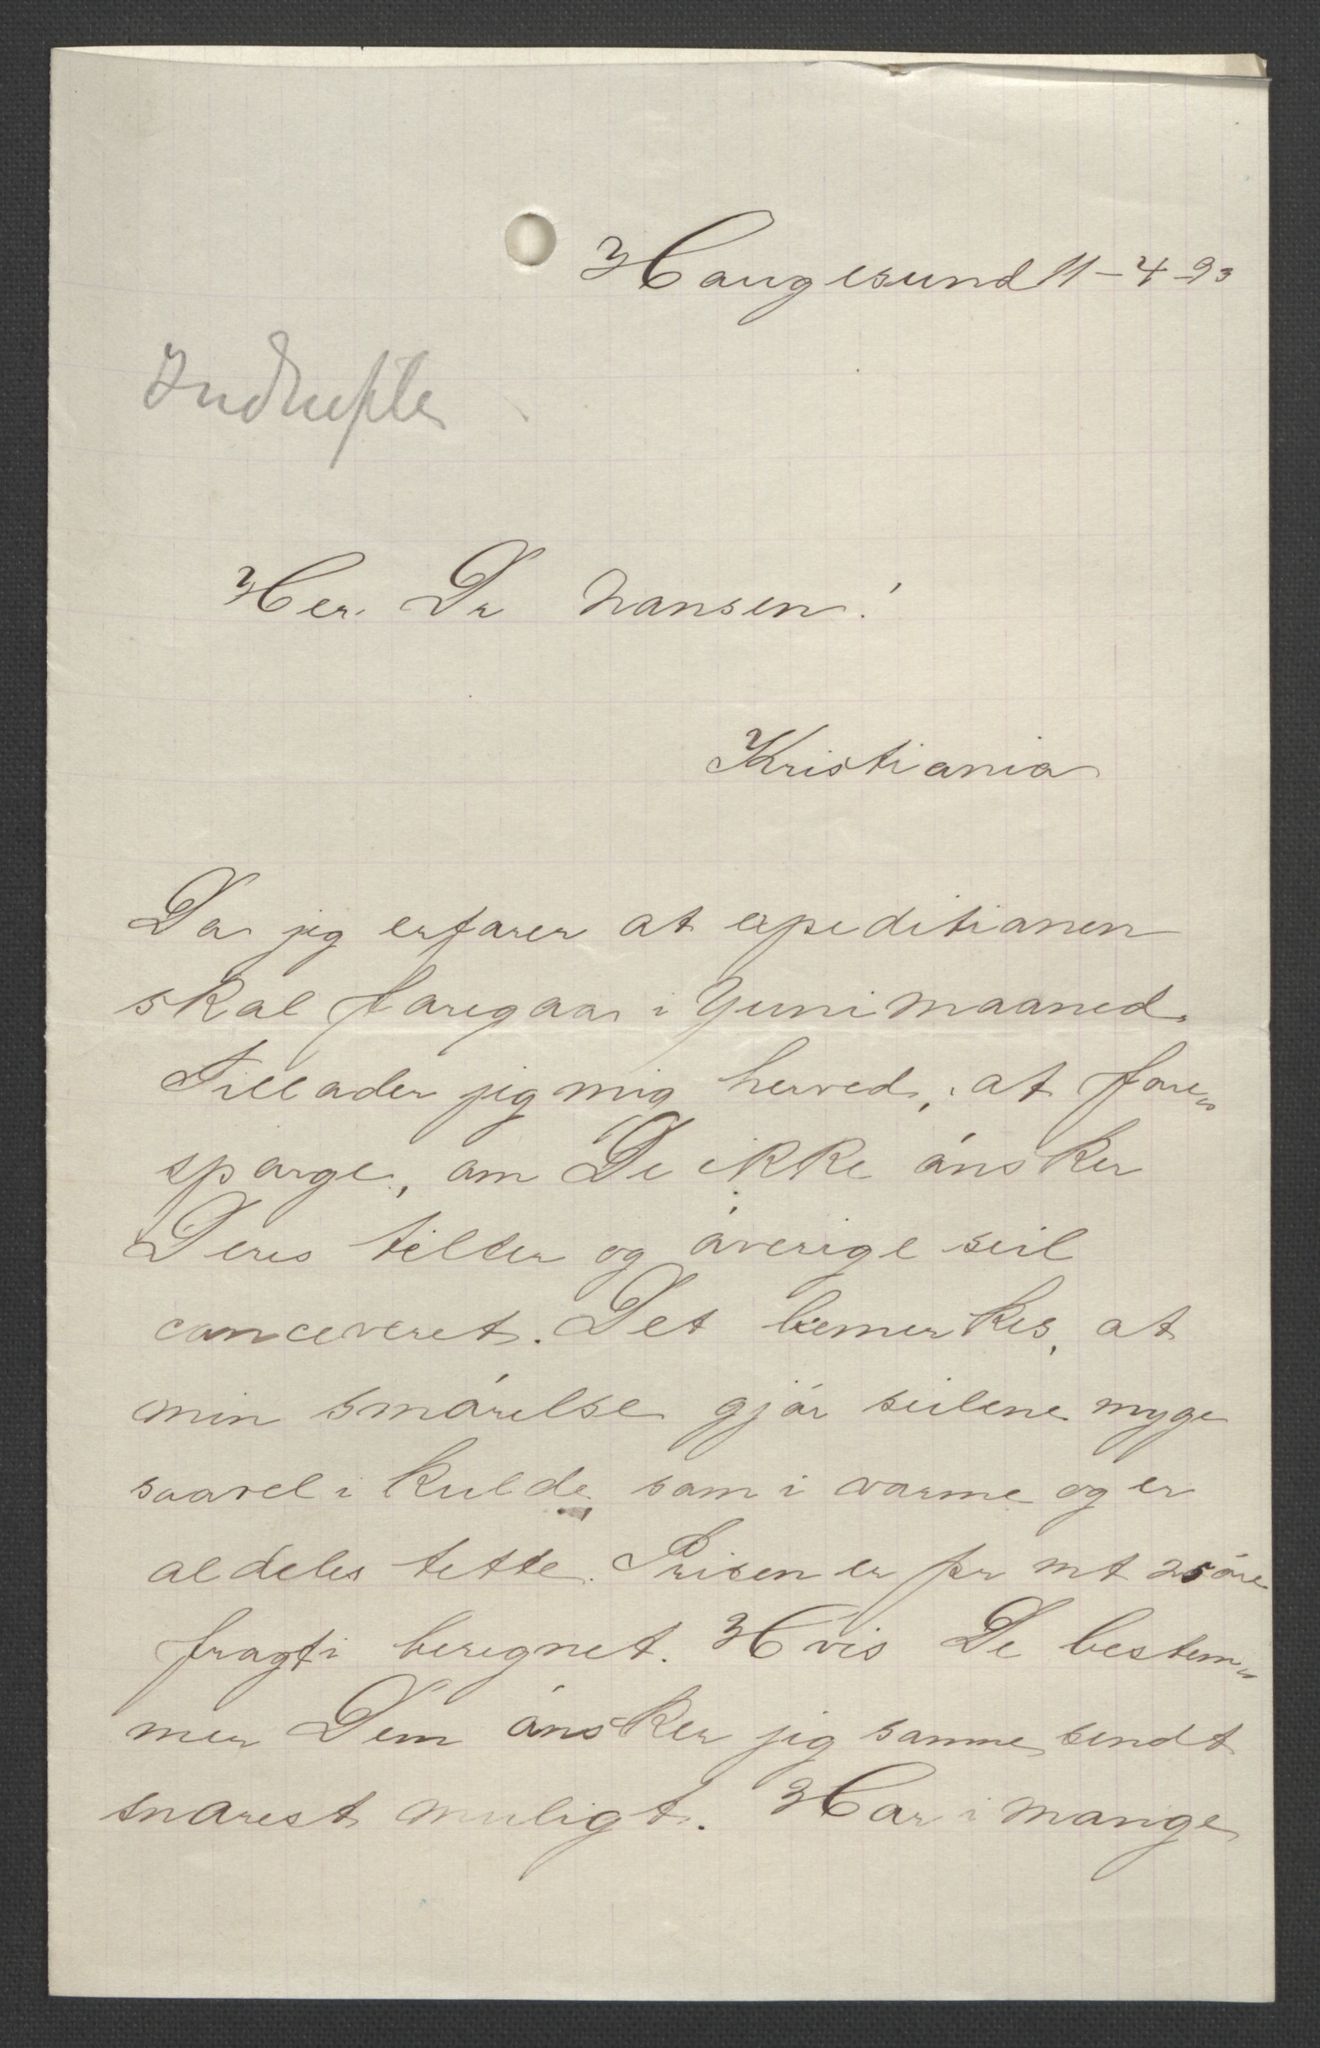 Haugesund 11-4-93
Indhefte
Her. Dr Nansen!
Kristiania
Da jig erfarer at expeditionen
skal foregaa i Yuni maaned.
Tillader jig mig herved, at fore„
sporge, om De ikke ónsker
Deres telter og óverige seil
conceveret. Det bemerkes, at
min smórelse gjór seilene myge
saavel i kulde som i varme og er
aldeles tette. Prisen er pr mt 25 óre
fragt i beregnet. Hvis De bestem„
mer Dem ónsker jig samme sendt
snarest muligt. Har i mange